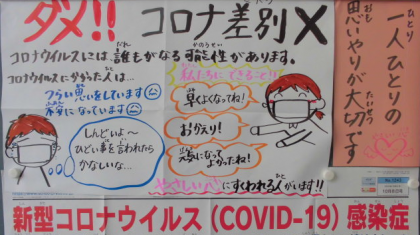 ダメ!! コロナ差別 ×
コロナウイルスには誰もがなる可能性があります。
だれ
かのうせい
コロナウイルスにかかった人は…
つらい思いをしています
様になっています
しんどいよ〜
ひどい事を言われたら
かなしいな…
私たちにできること!!
早くよくなってね!
おかえり!
元気になって
よかったね!
やさしい心にすくわれる人がいます!!
ひとり
一人ひとりの
おも
思いやりが
たいせつ
大切です
新型コロナウイルス(COVID-19)感染症